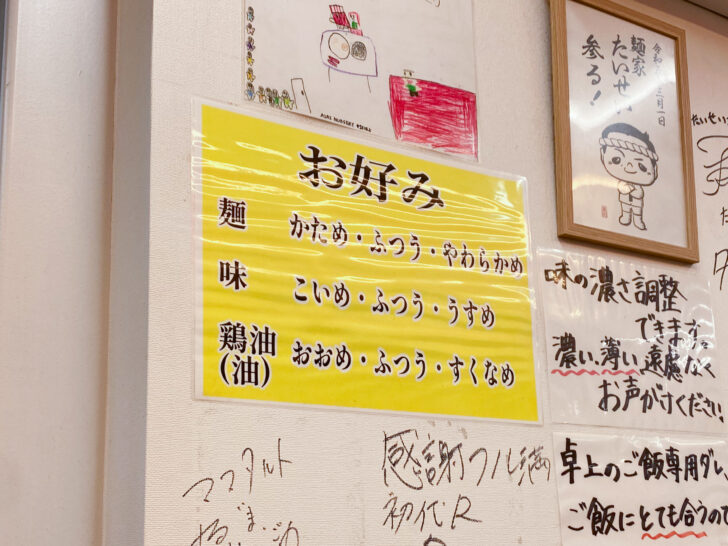 お好み
麺 かため・ふつう・やわらかめ
味 こいめ・ふつう・うすめ
鶏油 おおめ・ふつう・すくなめ
(油)
麺家
参る!
味の濃さ調整
できます。
濃い、薄い、遠慮なく
お声がけください
卓上のご飯専用ダレ、
ご飯にとても合うので
ママタルト
感謝フル満
初代R